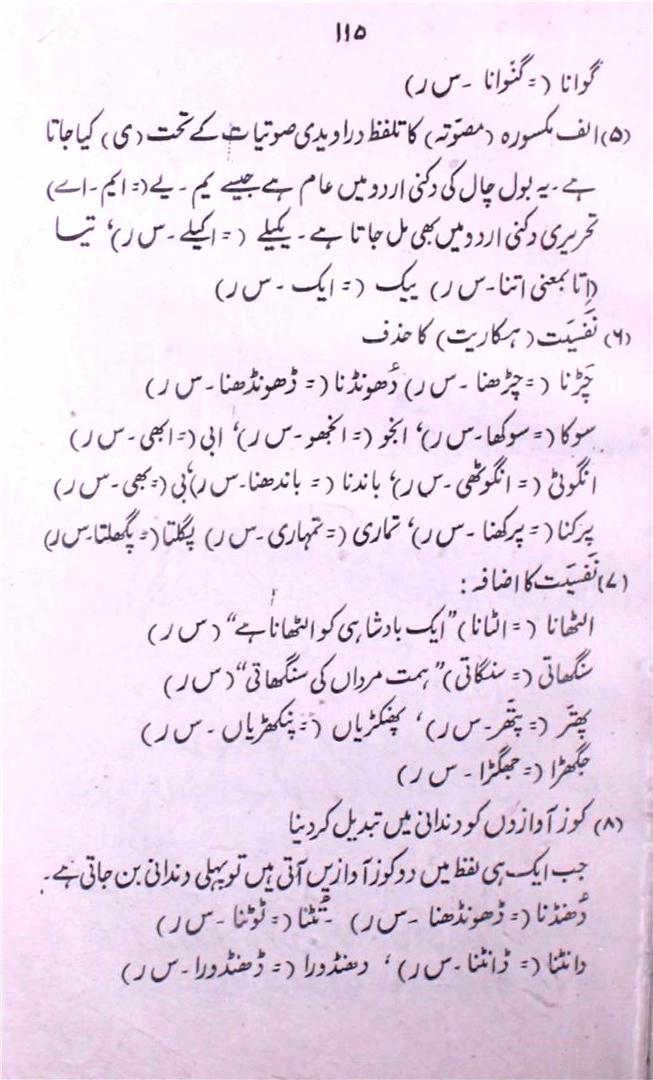 ۱۱۵
گوانا (= گنّوانا ۔ س ر)
(۵) الف مکسورہ (مصوّتہ) کا تلفظ دراویدی صوتیات کے تحت (ی) کیا جاتا
ہے۔ یہ بول چال کی دکنی اردو میں عام ہے جیسے یم۔ یے (= ایم۔ اے)
تحریری دکنی اردو میں بھی مل جاتا ہے۔ یکیلے (= اکیلے۔ س ر)، تیا
(اِتا بمعنی اتنا۔ س ر) ییک (= ایک ۔ س ر)
(۶) نَفَسِیَت (ہکاریت) کا حذف
چَڑنا (= چڑھنا ۔ س ر) دُھونڈنا (= ڈھونڈھنا۔ س ر)
سوکا (= سوکھا۔ س ر)، انجو (= انجھو۔ س ر)، ابی (= ابھی۔ س ر)
انگوٹی (= انگوٹھی۔ س ر)، باندنا (= باندھنا۔ س ر)، بی (= بھی۔ س ر)
پرکنا (= پرکھنا ۔ س ر)، تماری (= تمہاری۔ س ر) پگلتا (= پگھلتا۔ س ر)
(۷) نَفَسِیَت کا اضافہ :
الٹھانا (= الٹانا) "ایک بادشاہی کو الٹھانا ہے" (س ر)
سنگھاتی (= سنگاتی) "ہمت مرداں کی سنگھاتی" (س ر)
پھتّر (= پتّھر۔ س ر)، پھنکڑیاں (= پنکھڑیاں ۔ س ر)
جگھڑا (= جھگڑا ۔ س ر)
(۸) کوز آوازوں کو دندانی میں تبدیل کر دینا
جب ایک ہی لفظ میں دو کوز آوازیں آتی ہیں تو پہلی دندانی بن جاتی ہے۔
دُھنڈنا (= ڈھونڈھنا ۔ س ر) ۔ تُنٹنا (= ٹوٹنا ۔ س ر)
دانٹنا (= ڈانٹنا ۔ س ر)، دھنڈورا (= ڈھنڈورا۔ س ر)